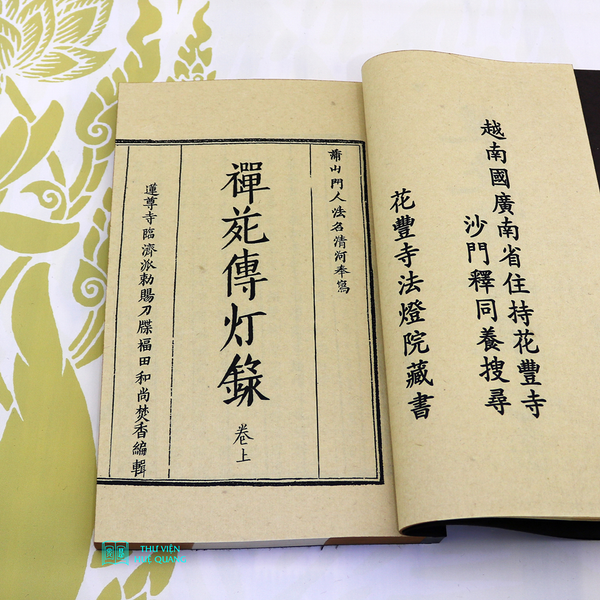 越南國廣南省住持花豐寺
沙門釋同養搜尋
花豐寺法燈院藏書
蕭山門人法名清河奉寫
禪苑傳灯錄
卷上
蓮尊寺臨濟派勅賜刀牒福田和尚焚香編輯
THƯ VIỆN
HUỆ QUANG